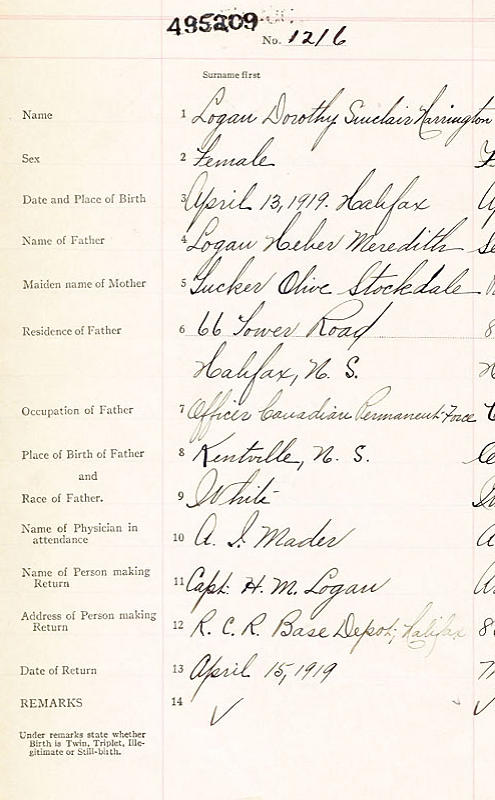 495209
No. 1216
Surname first
Name 1 Logan Dorothy Sinclair Harrington
Sex 2 Female
Date and Place of Birth 3 April 13, 1919. Halifax
Name of Father 4 Logan Heber Meredith
Maiden name of Mother 5 Tucker Olive Stockdale
Residence of Father 6 66 Tower Road
Halifax, N. S.
Occupation of Father 7 Officer Canadian Permanent Force
Place of Birth of Father 8 Kentville, N. S.
and
Race of Father. 9 White
Name of Physician in
attendance 10 A. I. Mader
Name of Person making
Return 11 Capt. H. M. Logan
Address of Person making
Return 12 R. C. R. Base Depot, Halifax
Date of Return 13 April 15, 1919
REMARKS 14
Under remarks state whether
Birth is Twin, Triplet, Ille-
gitimate or Still-birth.